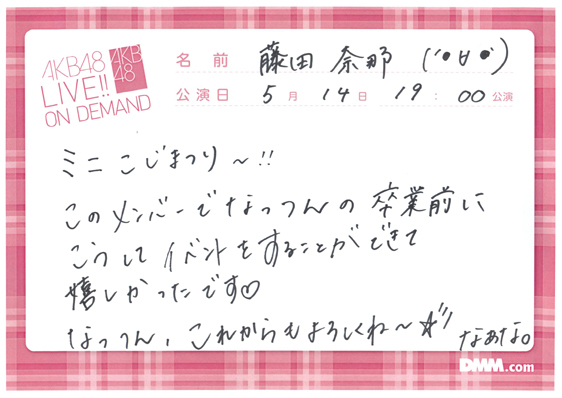 AKB48
LIVE!!
ON DEMAND
AKB
48
名前 藤田 奈那 (´●∀●`)
公演日 5月 14日 19:00公演
ミニこじまつり〜!!
このメンバーでなっつんの卒業前に
こうしてイベントをすることができて
嬉しかったです♡
なっつん、これからもよろしくね〜☆彡 なぁな。
DMM.com